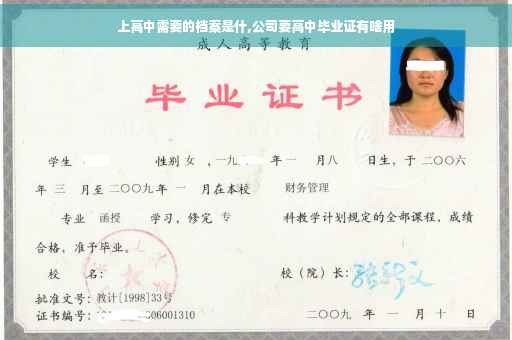 上高中需要的档案是什,公司要高中毕业证有啥用
成人高等教育
毕业证书
学生 性别 女 ,一九 年一 月八 日生,于二〇〇六
年 三 月至二〇〇九年 一 月在本校 财务管理
专业 函授 学习,修完 专 科教学计划规定的全部课程,成绩
合格,准予毕业。
校 名: 校(院)长:
批准文号:教计[1998]33号
证书编号: 06001310 二〇〇九 年 一 月 十 日